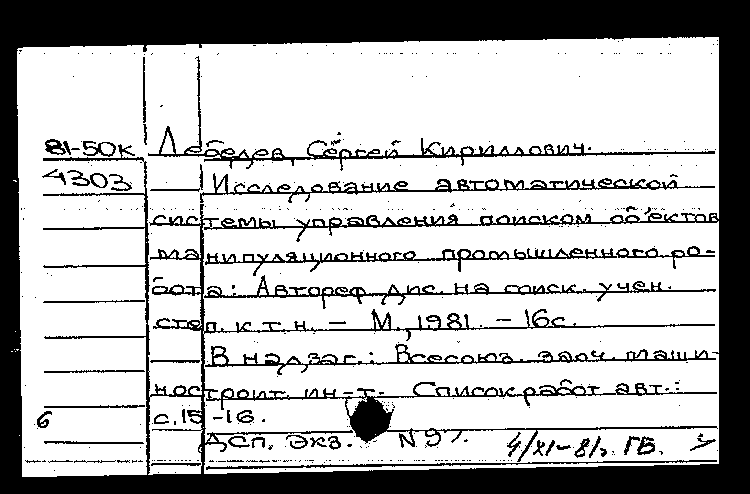 81-50к Лебедев, Сергей Кириллович.
4303 Исследование автоматической
системы управления поиском объектов
манипуляционного промышленного ро-
бота: Автореф. дис. на соиск. учен.
степ. к.т.н. – М., 1981. – 16с.
В надзаг.: Всесоюз. заоч. маши-
ностроит. ин-т. Список работ авт.:
6 с.15-16.
ДСП. Экз. N 97. 4/XI-81г. ГБ.